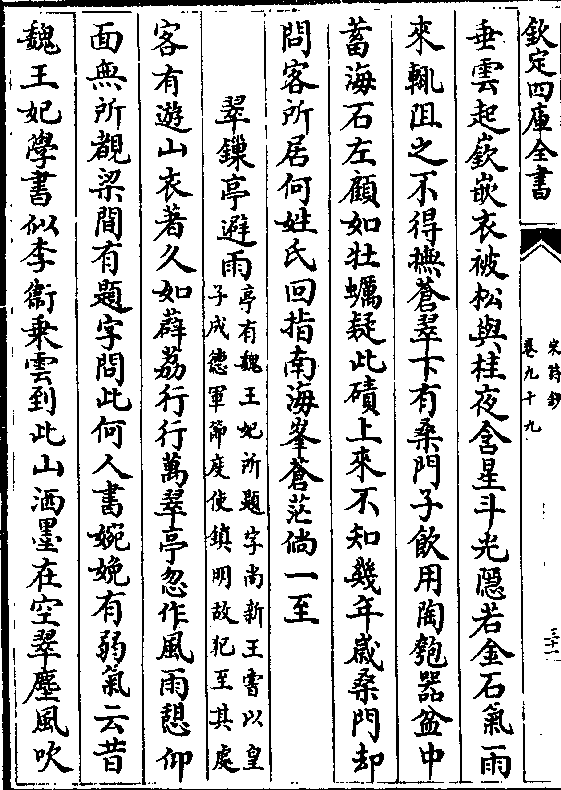 欽定四庫全書
宋詩鈔
卷九十九
三十一
垂雲起嵚嵌衣被松與桂夜含星斗光隱若金石氣一雨
來輒阻之不得撫蒼翠下有桑門子飲用陶匏器盆中
蓄海石左顧如壯蠣疑此磧上來不知幾年歲桑門却
問客所居何姓氏回指南海峯蒼茫倘一至
翠鏁亭避雨
亭有魏王妃所題字尚新王嘗以皇
子成德軍節度使鎮明故妃至其處
客有遊山衣著久如薜荔行行萬翠亭忽作風雨憇仰
面無所覩梁間有題字問此何人書婉娩有弱氣云昔
魏王妃學書似李衛乗雲到此山洒墨在空翠塵風吹